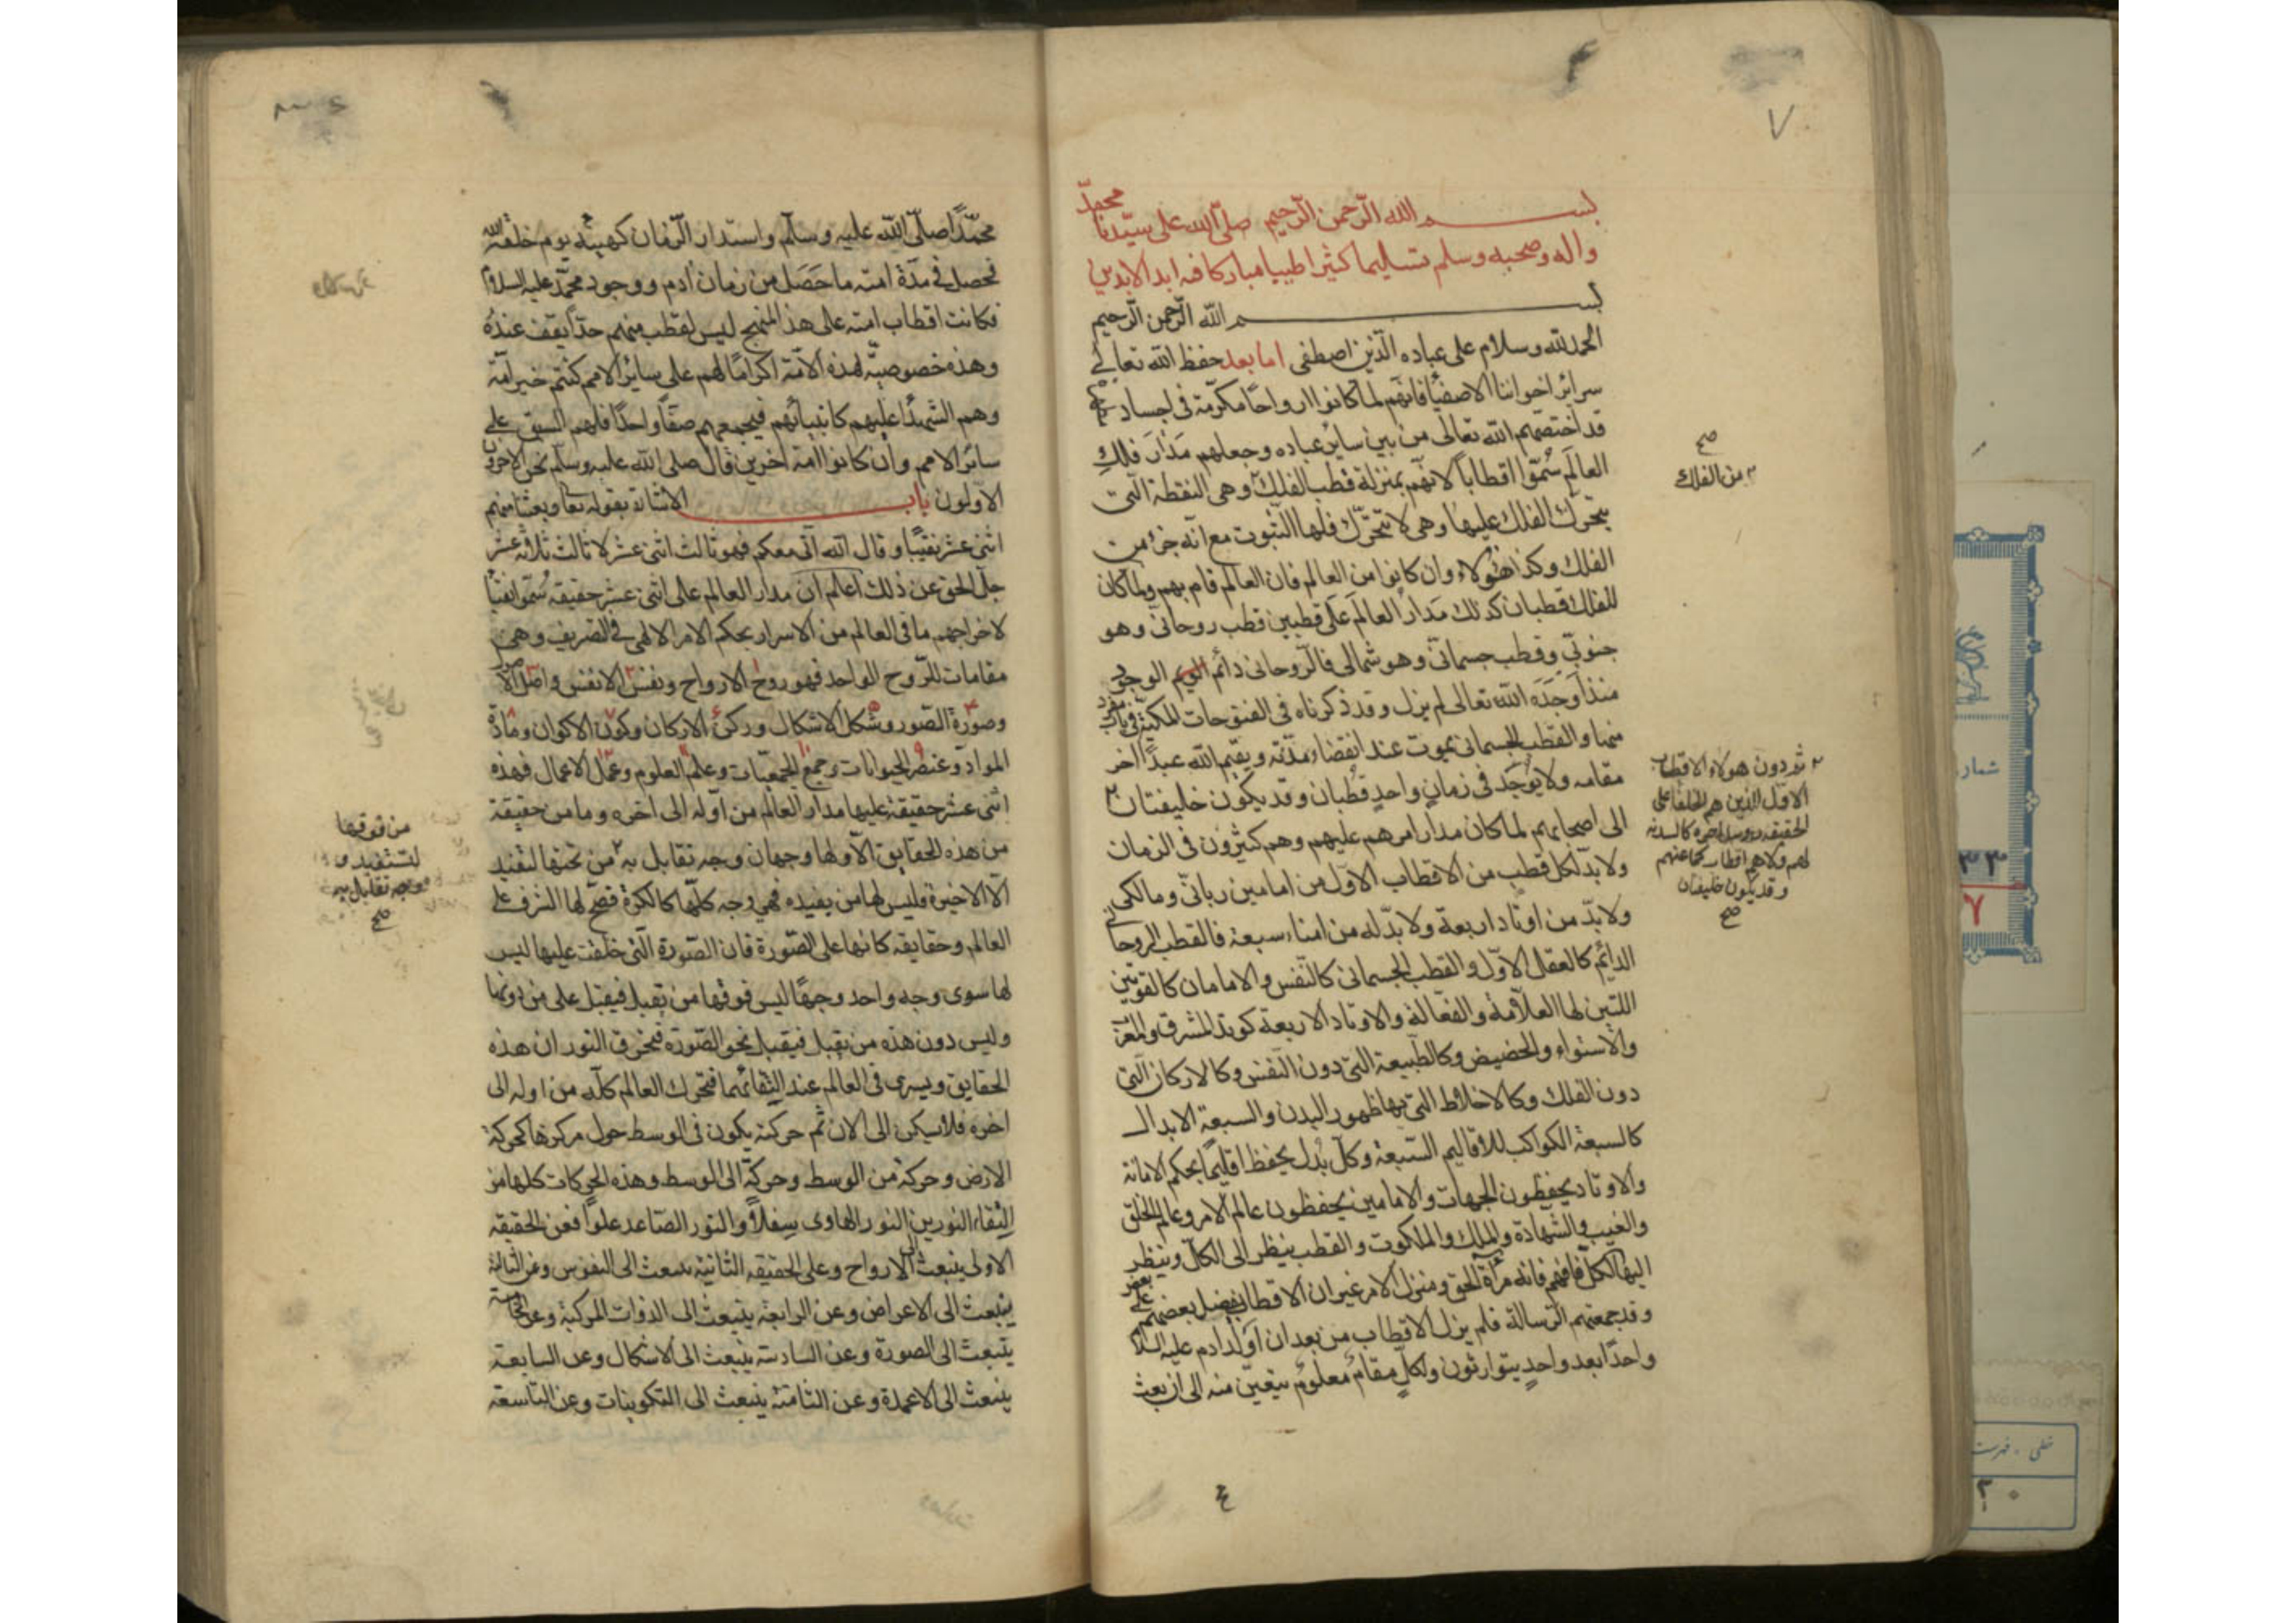 ٧
بسم الله الرحمن الرحيم صلى الله على سيدنا محمد
واله وصحبه وسلم تسليما كثيرا طيبا مباركا فيه ابد الابدين
بسم الله الرحمن الرحيم
الحمد لله وسلام على عباده الذين اصطفى اما بعد حفظ الله تعالى
سرائر اخواننا الاصفيا فانهم لما كانوا ارواحا مكرمة فى اجساد
قد اختصهم الله تعالى من بين ساير عباده وجعلهم مدار فلك
العالم سموا اقطابا لانهم بمنزلة قطب الفلك وهى النقطة التى
يتحرك الفلك عليها وهى لا تتحرك فلها الثبوت مع انه جزء من
الفلك وكذا هؤلاء وان كانوا من العالم فان العالم قام بهم ولما كان
للفلك قطبان كذلك مدار العالم على قطبين قطب روحانى وهو
جنوبى وقطب جسمانى وهو شمالى فالروحانى دائم الوجود
منذ اوجده الله تعالى لم يزل وقد ذكرناه فى الفتوحات المكية فى باب مفرد
منها والقطب الجسمانى يموت عند انقضاء مدته ويقيم الله عبدا اخر
مقامه ولا يوجد فى زمان واحد قطبان وقد يكون خليفتان ٢
الى اصحابهم لما كان مدار امرهم عليهم وهم كثيرون فى الزمان
ولا بد لكل قطب من الاقطاب الاول من امامين ربانى ومالكى
ولا بد من اوتاد اربعة ولا بد له من امناء سبعة فالقطب الروحانى
الدائم كالعقل الاول والقطب الجسمانى كالنفس والامامان كالقوتين
اللتين لها العلامة والفعالة والاوتاد الاربعة كوتد المشرق والمغرب
والاستواء والحضيض وكالطبيعة التى دون النفس وكالاركان التى
دون الفلك وكالاخلاط التى بها ظهور البدن والسبعة الابدال
كالسبعة الكواكب للاقاليم السبعة وكل بدل يحفظ اقليما بحكم الامانة
والاوتاد يحفظون الجهات والامامين يحفظون عالم الامر وعالم الخلق
والغيب والشهادة والملك والملكوت والقطب ينظر الى الكل وينظر
اليها الكل فافهم فانه مرآة الحق ومنزل الامر غير ان الاقطاب يفضل بعضهم على بعض
وقد جمعتهم الرسالة فلم يزل الاقطاب من بعد ان اولد ادم عليه السلام
واحدا بعد واحد يتوارثون ولكل مقام معلوم يتعين منه الى ان بعث
صح
من الفلك
٢ ثم دون هؤلاء الاقطاب
الاول الذين هم الخلفا على
الحقيقة كالسدنة
لهم
وقد يكون خليفتان
صح
شمار
٣٣
٧
خطى . فهرست
٢٠
محمدا صلى الله عليه وسلم واستدار الزمان كهيئته يوم خلقه الله
فحصل فى مدة امته ما حصل من زمان ادم ووجود محمد عليه السلام
فكانت اقطاب امته على هذا المنهج ليس لقطب منهم حدا يقف عنده
وهذه خصوصية لهذه الامة اكراما لهم على ساير الامم كنتم خير امة
وهم الشهدا عليهم كانبيائهم فيجمعهم صفا واحدا فلهم السبق على
سائر الامم وان كانوا امة اخرين قال صلى الله عليه وسلم نحن الاخرون
الاولون باب الاشارة بقوله تعا وبعثنا منهم
اثنى عشر نقيبا وقال الله انى معكم فهو ثالث اثنى عشر لا ثالث ثلاثة عشر
جل الحق عن ذلك اعلم ان مدار العالم على اثنى عشر حقيقة سموا نقبا
لاخراجهم ما فى العالم من الاسرار بحكم الامر الالهى فى الصريف وهى
مقامات للروح الواحد فهو روح الارواح ونفس الانفس واصل الاصول
وصورة الصور وشكل الاشكال وركن الاركان وكون الاكوان ومادة
المواد وعنصر الحيوانات وجمع الجمعيات وعلم العلوم وعمل الاعمال فهذه
اثنى عشر حقيقة عليها مدار العالم من اوله الى اخره وما من حقيقة
من هذه الحقايق الا ولها وجهان وجه تقابل به ٢ من تحتها لتفيد
الا الاخيرة فليس لها من يفيده فهى وجه كلها كالكرة فصح لها الشرف على
العالم وحقايقه كانها على الصورة فان الصورة التى خلقت عليها ليس
لها سوى وجه واحد وجها ليس فوقها من تقبل فيقبل على من دونها
وليس دون هذه من تقبل فيقبل نحو الصورة فتخرق النور ان هذه
الحقايق ويسرى فى العالم عند التقائهما فتحرك العالم كله من اوله الى
اخره فلا يسكن الى الان ثم حركته يكون فى الوسط حول مركزها كحركة
الارض وحركة من الوسط وحركة الى الوسط وهذه الحركات كلها من
التقاء النورين النور الهاوى سفلا والنور الصاعد علوا فعن الحقيقة
الاولى ينبعث الى الارواح وعلى الحقيقة الثانية ينبعث الى النفوس وعن الثالثة
ينبعث الى الاعراض وعن الرابعة ينبعث الى الذوات المركبة وعن الخامسة
ينبعث الى الصورة وعن السادسة ينبعث الى الاشكال وعن السابعة
ينبعث الى الاعمدة وعن الثامنة ينبعث الى التكوينات وعن التاسعة
من فوقها
لتستفيد و
وجه تقابل به
صح